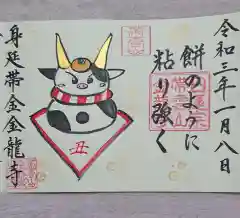 令和三年一月八日
餅のように
粘り強く
丑
身延帯金金龍寺